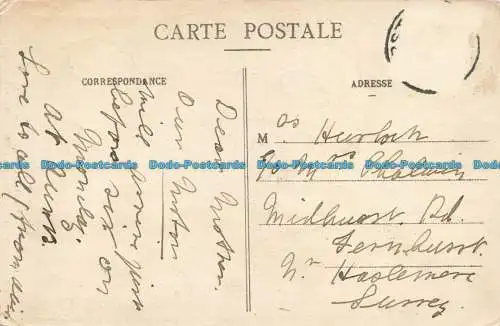 CARTE POSTALE
CORRESPONDANCE
ADRESSE
Dear Mother.
Our Motor
will
before six on
Monday.
At Aunts.
Love to all from
M rs Hurlock
Midhurst Rd.
Fernhurst
Nr Haslemere
Surrey
Dodo-Postcards Dodo-Postcards Dodo-Postcards Dodo-Postcards Dodo-Postcards